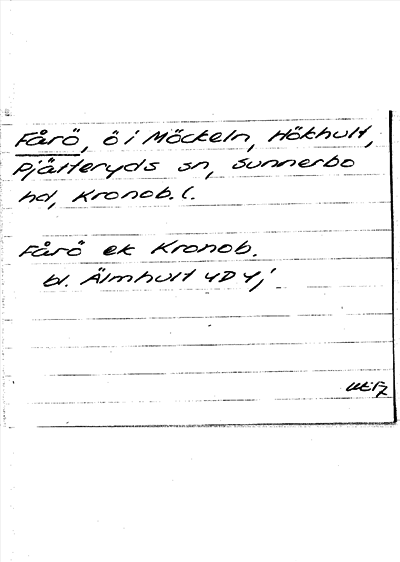 Fårö, ö i Möckeln, Hökhult,
Pjätteryds sn, Sunnerbo
hd, Kronob. l.
Fårö ek Kronob.
bl. Älmhult 4D 4j